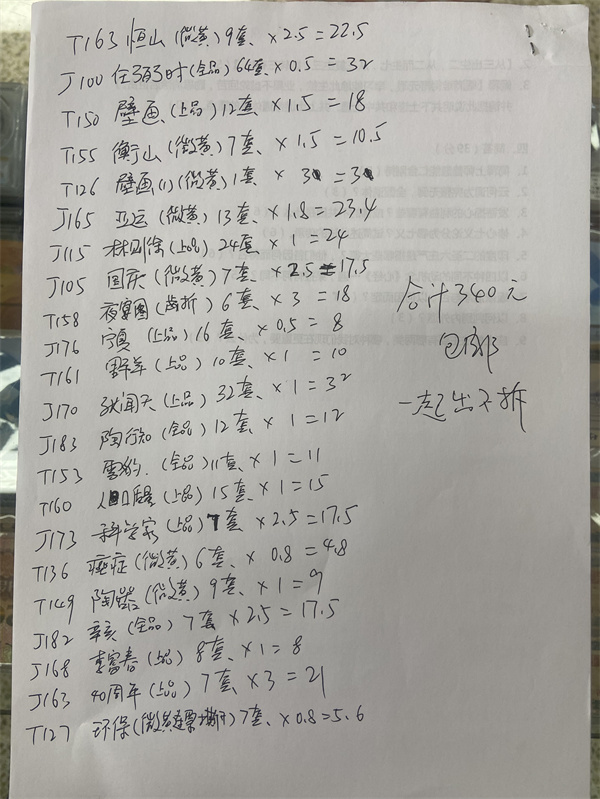 T163 恒山(微黄)9套、×2.5=22.5
J100 任弼时(全品)64套×0.5=32
T150 壁画、(上品)12套×1.5=18
T155 衡山(微黄)7套、×1.5=10.5
T126 壁画(1)(微黄)1套 ×3=3
J165 亚运(微黄)13套×1.8=23.4
J115 林则徐(上品)24套×1=24
J105 国庆(微黄)7套、×2.5=17.5
T158 夜宴图(齿折)6套×3=18
J176 (上品)16套、×0.5=8
T161 野羊(上品)10套×1=10
J170 张闻天(上品)32套×1=32
J183 陶行知(全品)12套×1=12
T153 雪豹.(全品)11套×1=11
T160 人口 (上品)15套×1=15
J173 科学家(上品)7套×2.5=17.5
T136 癌症(微黄)6套×0.8=4.8
T149 陶器(微黄)9套×1=9
J182 辛亥(全品)7套×2.5=17.5
J168 李富春(上品)8套、×1=8
J163 40周年(上品)7套×3=21
T127 环保(微黄)7套、×0.8=5.6
合计340元
包邮
一起出不拆